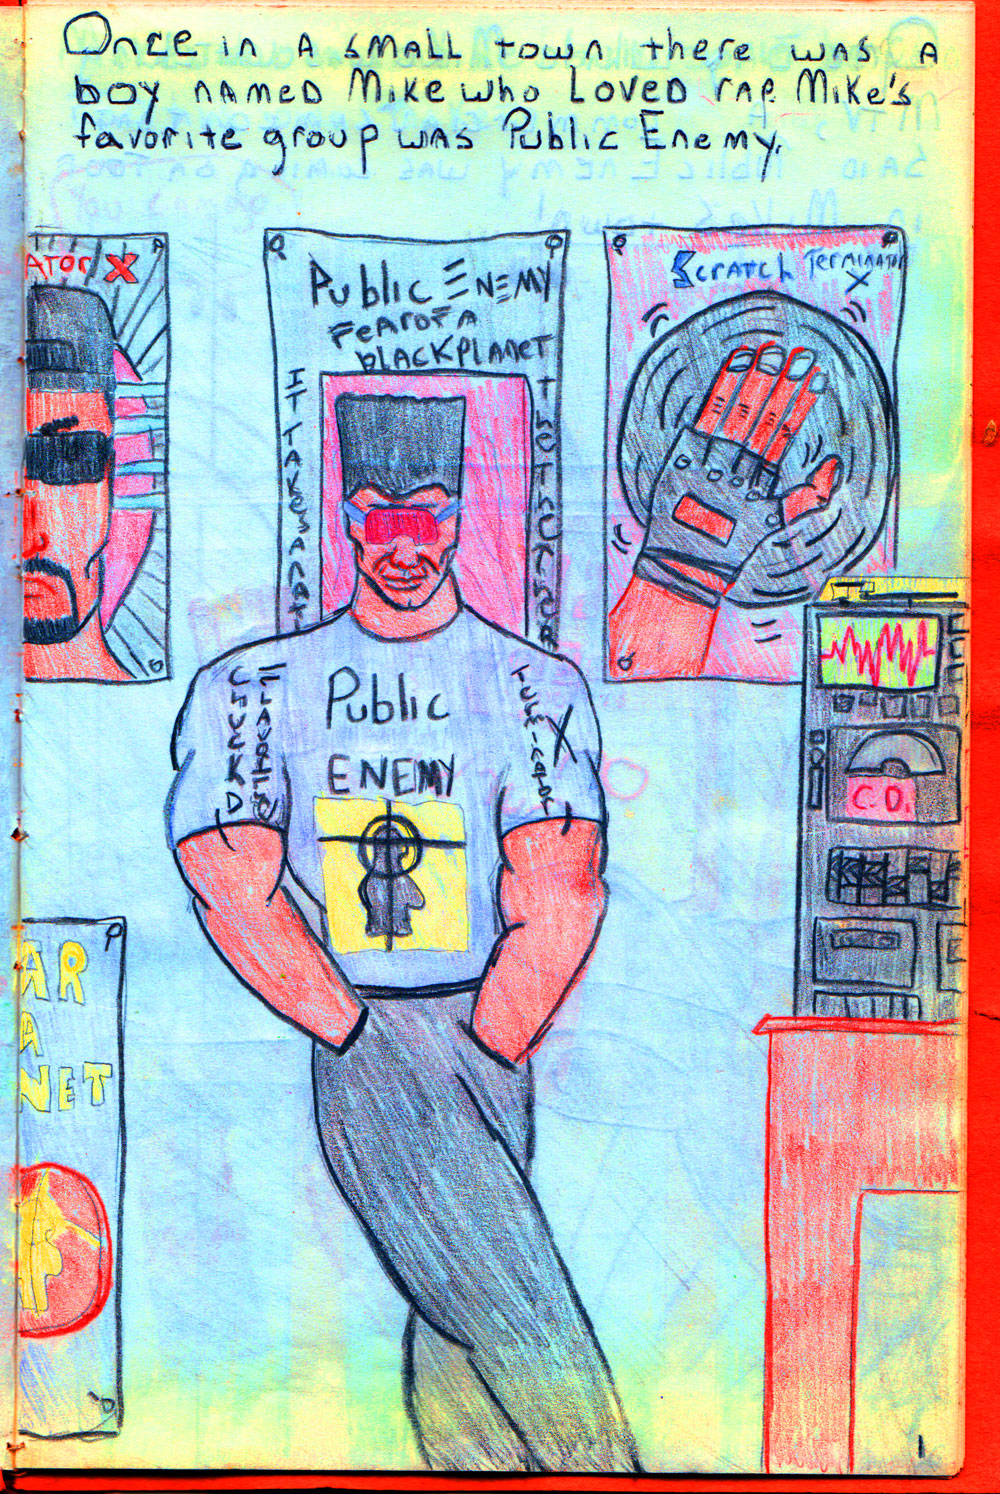 Once in A small town there was A
boy named Mike who Loved rap. Mike's
favorite group was Public Enemy.
ATOR X
Public ENEMY
FEAR OF A
blACK PlANET
IT TAKES A NAT
Scratch TERMINATOR
X
Public
ENEMY
CHUCK D
FLAVOR
X
C.D.
AR
A
NET
1